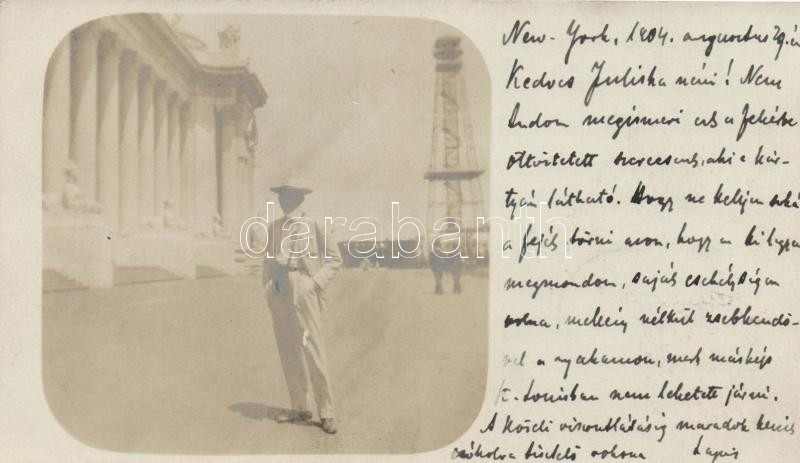 New-York, 1904. augusztus 29.én
Kedves Juliska néni! Nem
tudom megismeri e a fehérbe
öltöztetett szerecsent, aki e kár-
tyán látható. Hogy ne keljen soká
a fejét törni azon, hogy az ki legyen
megmondom, saját csekélységem
volna, melény nélkül zsebkendő-
vel a nyakamon, mert máskép
St. Louisban nem lehetett járni.
A közeli viszontlátásig maradok kezeit
csókolva tisztelő rokona Lajos
darabanth.com